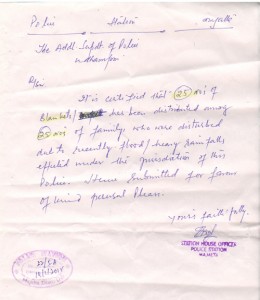 Police Station
The Addl Supdt. of Police
Udhampur
Sir,
It is certified that "25" no's of
Blankets/ has been distributed among
25 no's of family, who were disturbed
due to recently flood/heavy rainfalls
effected under the jurisdiction of this
Police. Hence Submitted for favour
of kind perusal Please.
Yours faithfully
STATION HOUSE OFFICER
POLICE STATION